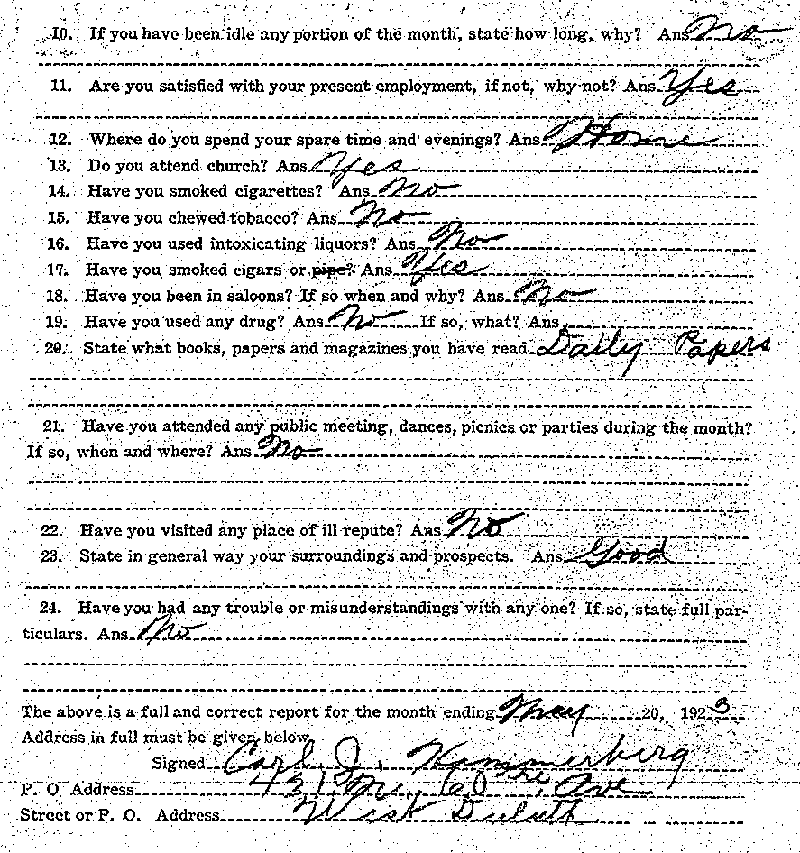 10. If you have been idle any portion of the month, state how long, why? Ans No
11. Are you satisfied with your present employment, if not, why not? Ans Yes
12. Where do you spend your spare time and evenings? Ans Home
13. Do you attend church? Ans Yes
14. Have you smoked cigarettes? Ans No
15. Have you chewed tobacco? Ans No
16. Have you used intoxicating liquors? Ans No
17. Have you smoked cigars or pipe? Ans Yes
18. Have you been in saloons? If so when and why? Ans No
19. Have you used any drug? Ans No If so, what? Ans
20. State what books, papers and magazines you have read Daily Papers
21. Have you attended any public meeting, dances, picnics or parties during the month?
If so, when and where? Ans No
22. Have you visited any place of ill repute? Ans No
23. State in general way your surroundings and prospects. Ans Good
24. Have you had any trouble or misunderstandings with any one? If so, state full par-
ticulars. Ans No
The above is a full and correct report for the month ending May 20, 1923
Address in full must be given below
Signed Carl J. Hammerberg
P. O Address Ave
Street or P. O. Address West Duluth